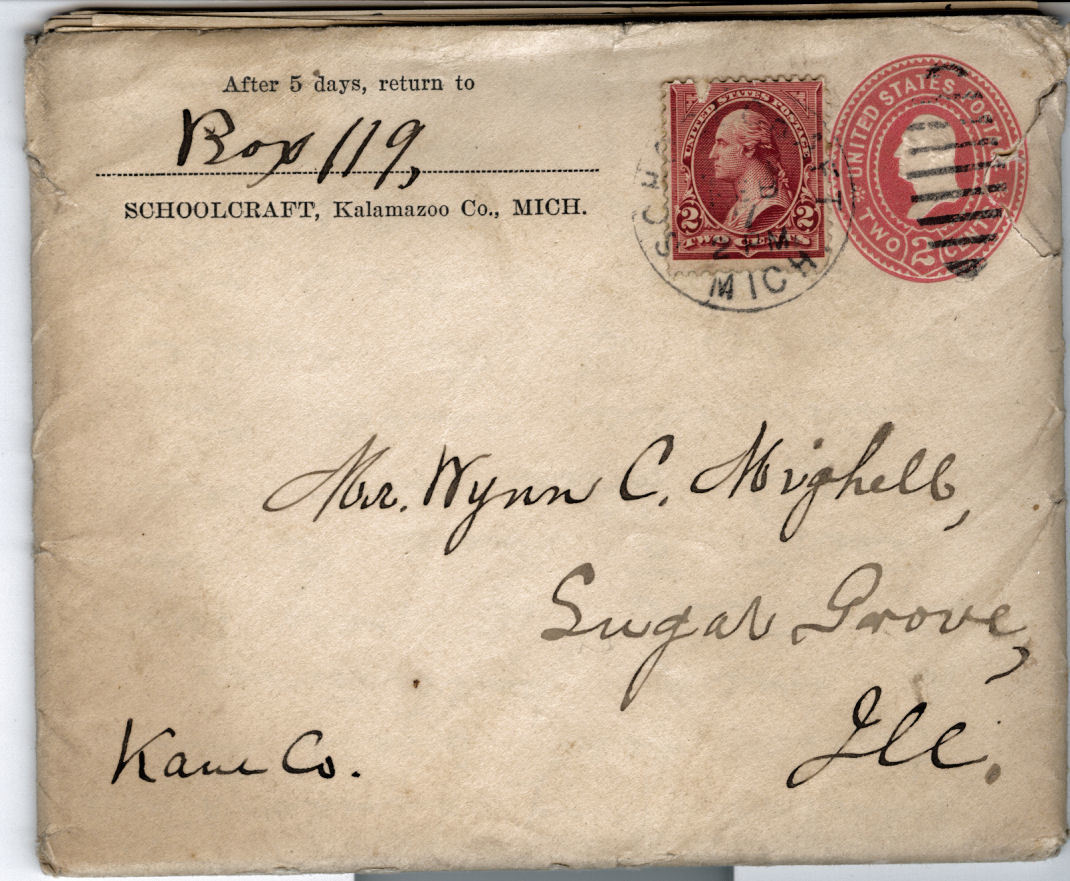 After 5 days, return to
Box 119,
SCHOOLCRAFT, Kalamazoo Co., MICH.
UNITED STATES POSTAGE
2 2
TWO CENTS
MICH.
2 PM
UNITED STATES POSTAGE
TWO 2 CENTS
Mr. Wynn C. Mighell,
Sugar Grove,
Ill.
Kane Co.